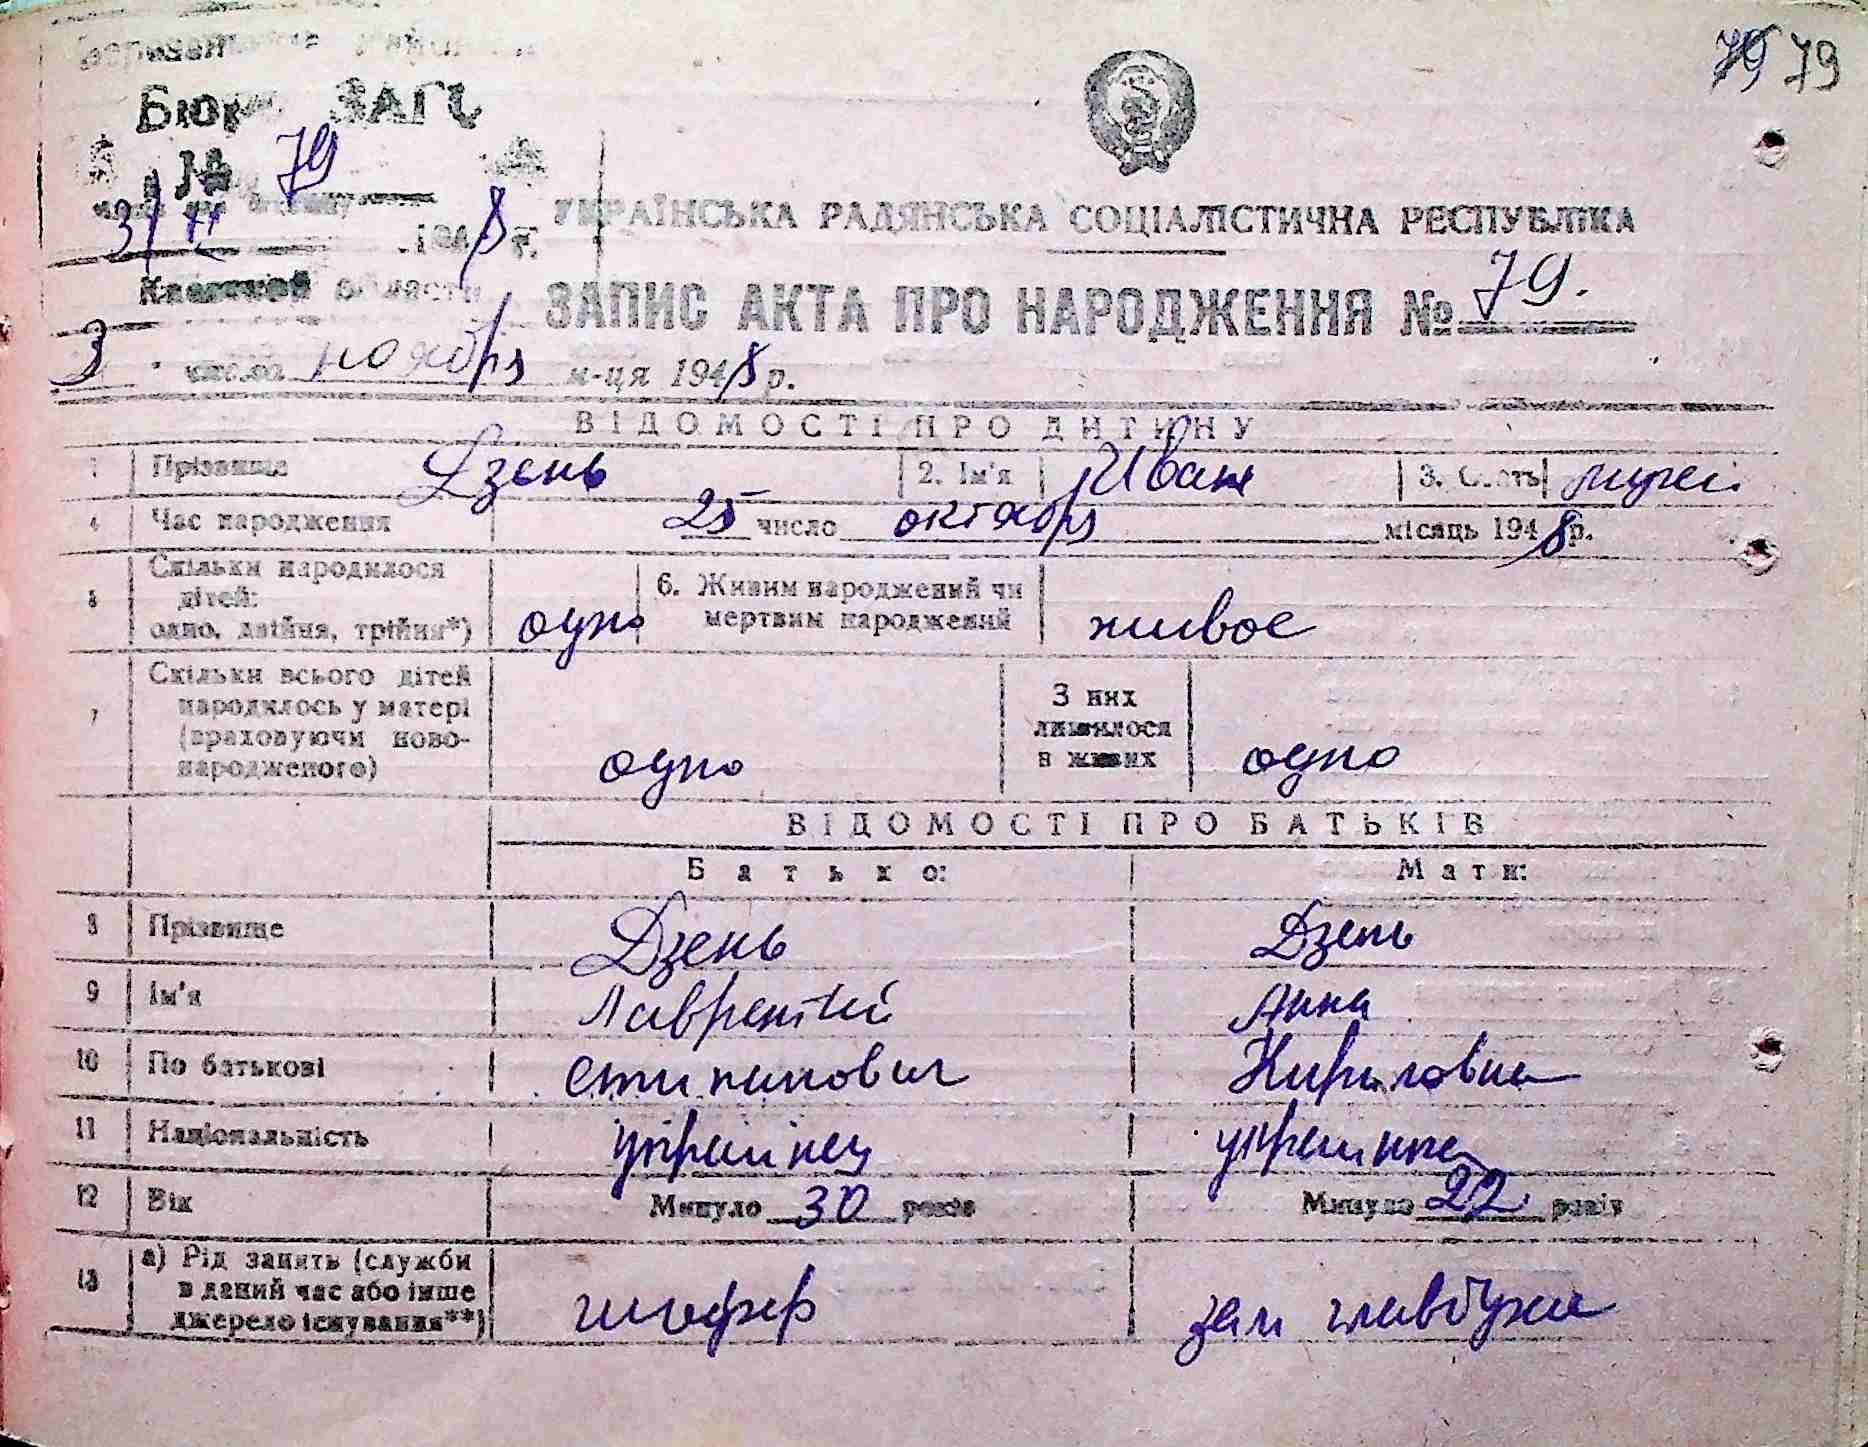 79 79
Бюро ЗАГС
№ 79
3/XI 1948 г.
УКРАЇНСЬКА РАДЯНСЬКА СОЦІАЛІСТИЧНА РЕСПУБЛІКА
области
ЗАПИС АКТА ПРО НАРОДЖЕННЯ № 79.
3 число ноября м-ця 1948 р.
ВІДОМОСТІ ПРО ДИТИНУ
1 Прізвище Дзень 2. Ім'я Иван 3. Стать мужс
4 Час народження 25 число октября місяць 1948 р.
5 Скільки народилося дітей: одно, двійня, трійня*) одно 6. Живим народжений чи мертвим народжений живое
7 Скільки всього дітей народилось у матері (враховуючи новонародженого) одно З них лишилося в живих одно
ВІДОМОСТІ ПРО БАТЬКІВ
Батько: Мати:
8 Прізвище Дзень Дзень
9 Ім'я Лаврентий Анна
10 По батькові Степанович Кириловна
11 Національність українец українка
12 Вік Минуло 30 років Минуло 22 років
13 а) Рід занять (служби в даний час або інше джерело існування**) шофер зам главбуха